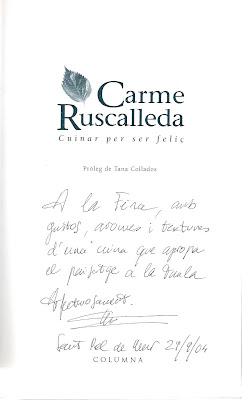 Carme
Ruscalleda
Cuinar per ser feliç
Pròleg de Tana Collados
A la Fina, amb
gustos, aromes i textures
d'una cuina que apropa
el paisatge a la taula
Afectuosament.
Sant Pol de Mar 29/9/04
COLUMNA